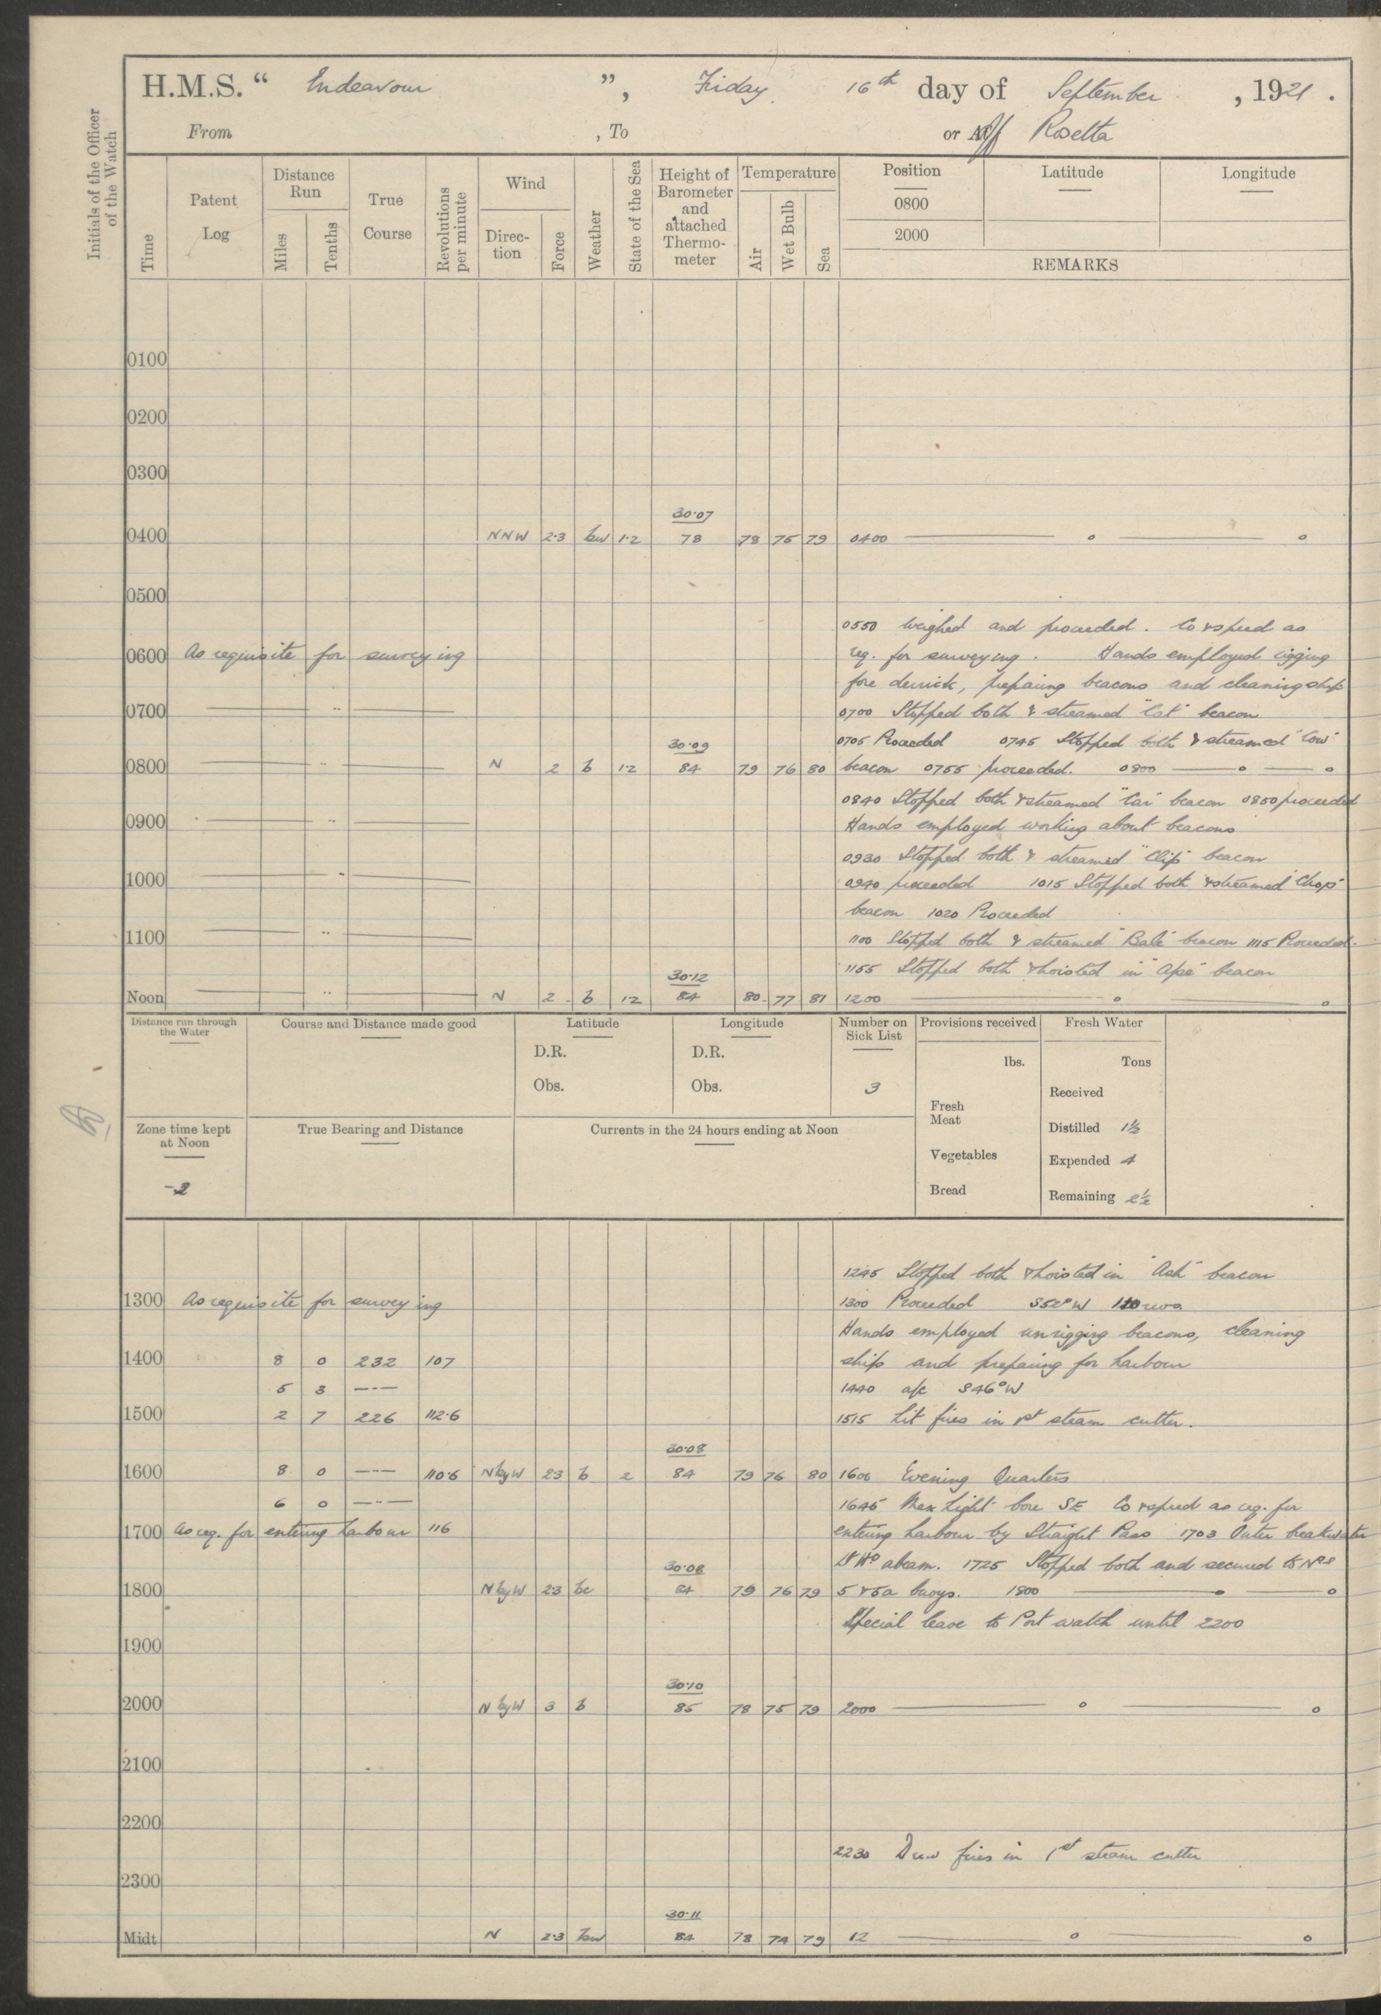 H.M.S. “ Endeavour ”, Friday 16th day of September , 1921 .
From , To or Off Rosetta
Initials of the Officer of the Watch
Time
Patent Log
Distance Run
Miles
Tenths
True Course
Revolutions per minute
Wind
Direction
Force
Weather
State of the Sea
Height of Barometer and attached Thermometer
Temperature
Air
Wet Bulb
Sea
Position
0800
2000
Latitude
Longitude
REMARKS
0100
0200
0300
30·07
0400 NNW 2·3 bw 1·2 78 78 75 79 0400 —— o —— o
0500
0550 Weighed and proceeded. Co & speed as
0600 As requisite for surveying req. for surveying. Hands employed rigging
fore derrick, preparing beacons and cleaning ship
0700 —— " —— 0700 Stopped both & streamed "Cat" beacon
30·09 0705 Proceeded 0745 Stopped both & streamed "Cow"
0800 —— " —— N 2 b 1·2 84 79 76 80 beacon 0755 proceeded. 0800 —— o —— o
0840 Stopped both & streamed "Car" beacon 0850 proceeded
0900 —— " —— Hands employed working about beacons
0930 Stopped both & streamed "Clip" beacon
1000 —— " —— 0940 proceeded 1015 Stopped both & streamed "Chop"
beacon 1020 Proceeded
1100 —— " —— 1100 Stopped both & streamed "Bale" beacon 1115 Proceeded.
30·12 1155 Stopped both & hoisted in "Ape" beacon
Noon —— " —— N 2 b 1·2 84 80 77 81 1200 —— o —— o
Distance run through the Water
Course and Distance made good
Latitude
D.R.
Obs.
Longitude
D.R.
Obs.
Number on Sick List
3
Provisions received
lbs.
Fresh Meat
Vegetables
Bread
Fresh Water
Tons
Received
Distilled 1½
Expended 4
Remaining 2½
Zone time kept at Noon
-2
True Bearing and Distance
Currents in the 24 hours ending at Noon
1245 Stopped both & hoisted in "Ash" beacon
1300 As requisite for surveying 1300 Proceeded S52°W 110 revs.
Hands employed unrigging beacons, cleaning
1400 8 0 232 107 ship and preparing for harbour
5 3 —"— 1440 a/c S46°W
1500 2 7 226 112·6 1515 Lit fires in 1st steam cutter.
30·08
1600 8 0 —"— 110·6 N by W 23 b 2 84 79 76 80 1600 Evening Quarters
6 0 —"— 1645 Mex light bore SE Co & speed as req. for
1700 As req. for entering harbour 116 entering harbour by Straight Pass 1703 Outer breakwater
30·08 Lt Ho abeam. 1725 Stopped both and secured to Nos
1800 N by W 23 bc 84 79 76 79 5 & 5a buoys. 1800 —— o —— o
Special leave to Port watch until 2200
1900
30·10
2000 N by W 3 b 85 78 75 79 2000 —— o —— o
2100
2200
2230 Drew fires in 1st steam cutter
2300
30·11
Midt N 2·3 bw 84 78 74 79 12 —— o —— o